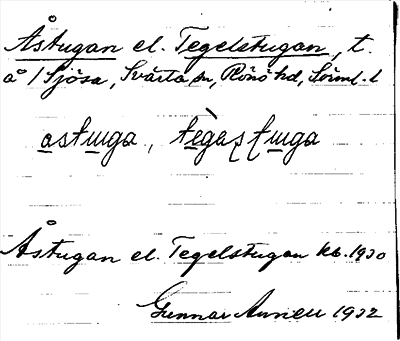 Åstugan el. Tegelstugan, t.
å / Sjösa, Svärta sn, Rönö hd, Sörml. l
astuga, tegaʂtuga
Åstugan el. Tegelstugan kb. 1930
Gunnar 1932